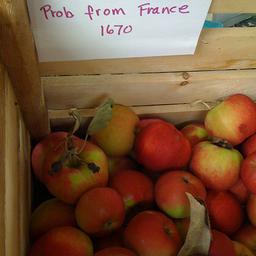 Prob from France
1670